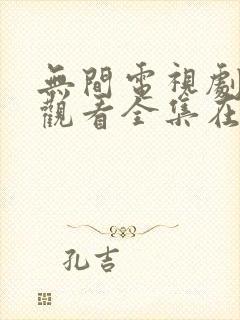 無間電視劇
觀看全集在
孔吉